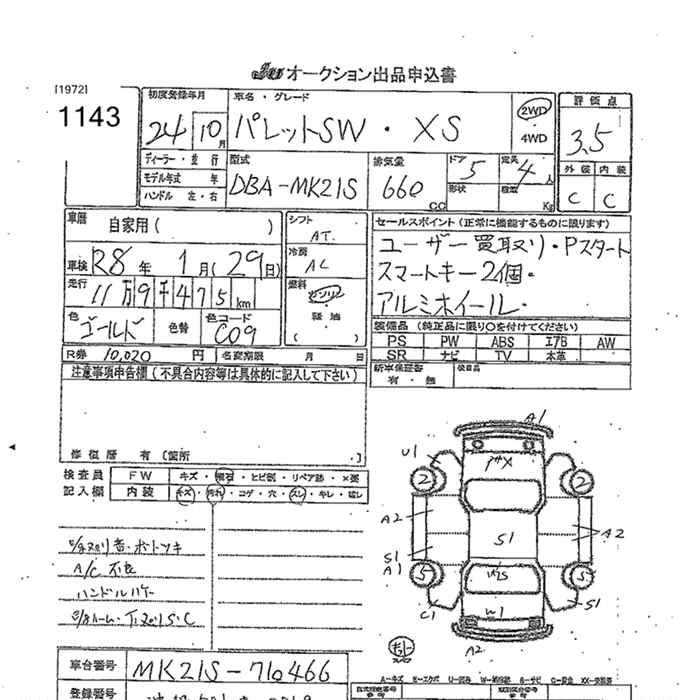 オークション出品申込書
[1972]
1143
初度登録年月
24 10月
車名・グレード
パレットSW・XS
2WD
・
4WD
評価点
3.5
外装 内装
C C
ディーラー・並行
モデル年式 年
ハンドル 左・右
型式
DBA-MK21S
排気量
660
CC
ドア
5
形状
定員
4人
積量
Kg
車歴
自家用( )
車検 R8年 1月(29日)
走行
11万9千475km
色
ゴールド
色替
色コード
C09
シフト
AT
冷房
AC
燃料
ガソリン
軽油
( )
セールスポイント(正常に機能するものに限ります)
ユーザー買取り・Pスタート
スマートキー2個・
アルミホイール・
装備品(純正品に限り○を付けてください)
PS PW ABS エアB AW
SR ナビ TV 本革
新車保証書
有・無
後日品
R券 10,020円 名変期限 月 日
注意事項申告欄(不具合内容等は具体的に記入して下さい)
修復歴 有(箇所 )
検査員
記入欄
FW キズ・飛石・ヒビ割・リペア跡・×要
内装 キズ・汚れ・コゲ・穴・スレ・キレ・破レ
A/C不良
A1
U1
2
2
A2
S1
A2
S1
A1
5
5
C1
W1
S1
A2
スペア
車台番号
MK21S-710466
登録番号
A-キズ E-エクボ U-凹み W-補修跡 S-サビ C-腐食 XX-交換済